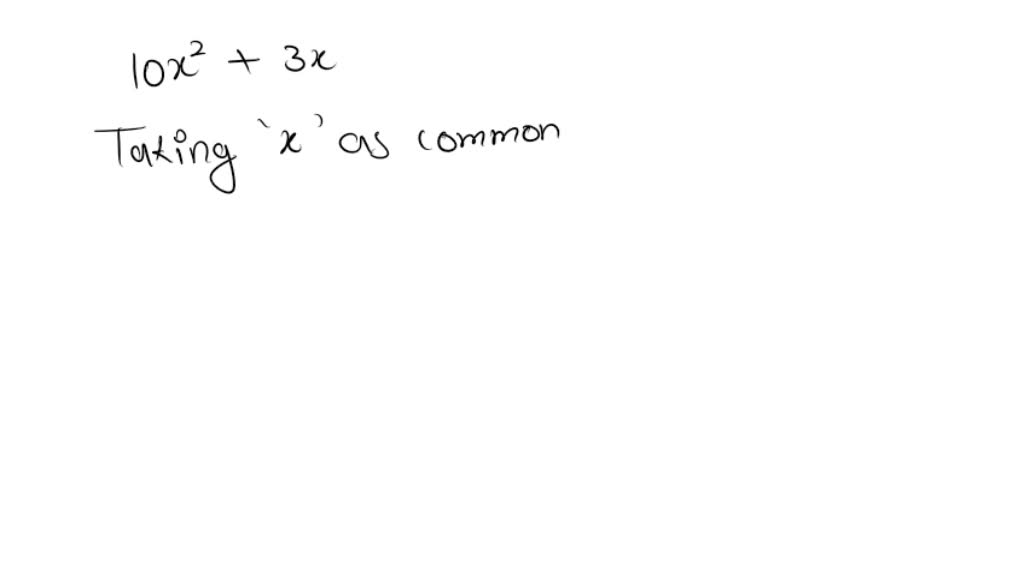 10x² + 3x
Taking 'x' as common